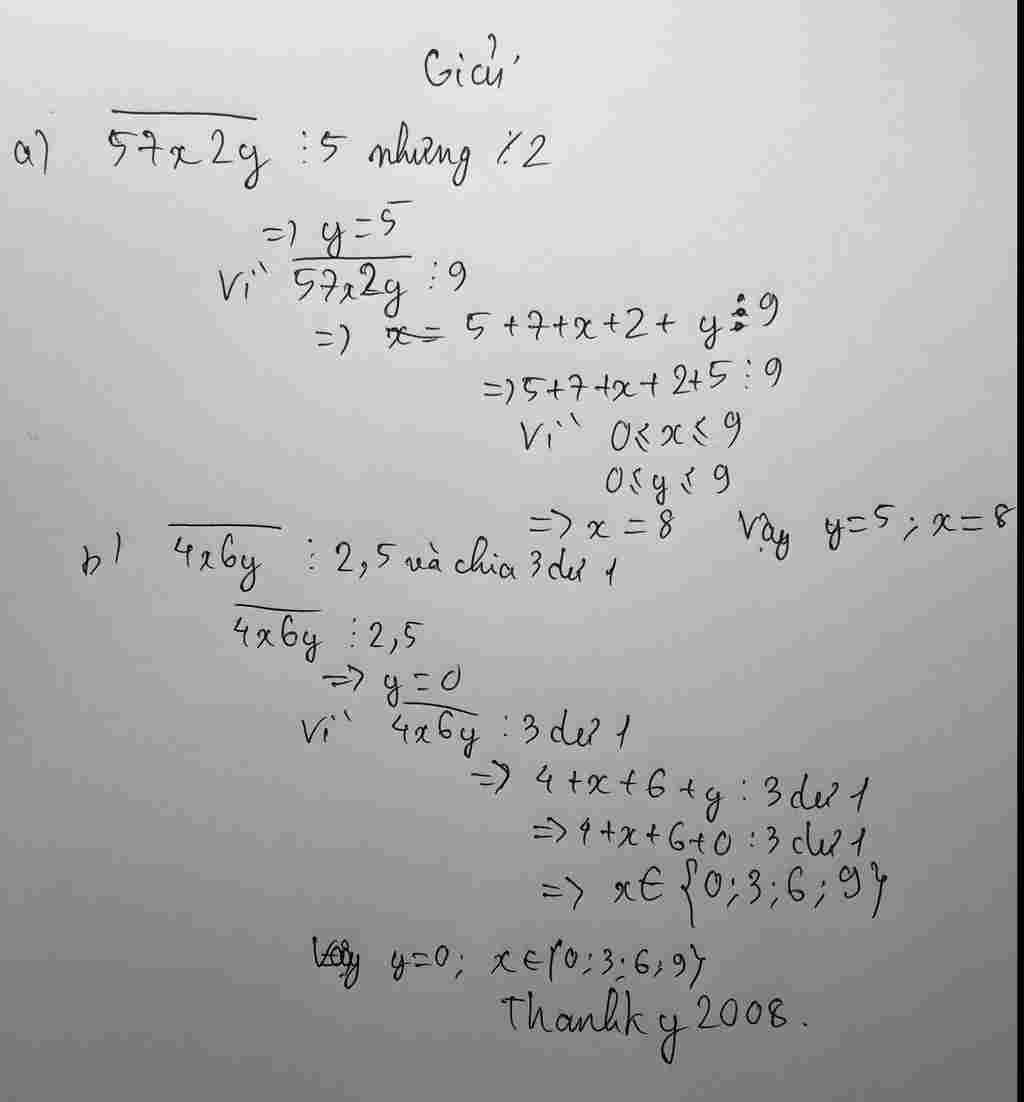 Giải
a) 57x2y ⋮ 5 nhưng ⋮̸ 2
=> y = 5
Vì 57x2y ⋮ 9
=> x = 5 + 7 + x + 2 + y ⋮ 9
=> 5 + 7 + x + 2 + 5 ⋮ 9
Vì 0 ≤ x ≤ 9
0 ≤ y ≤ 9
=> x = 8 Vậy y = 5 ; x = 8
b) 4x6y ⋮ 2,5 và chia 3 dư 1
4x6y ⋮ 2,5
=> y = 0
Vì 4x6y : 3 dư 1
=> 4 + x + 6 + y : 3 dư 1
=> 4 + x + 6 + 0 : 3 dư 1
=> x ∈ {0; 3; 6; 9}
Vậy y = 0; x ∈ {0; 3; 6; 9}
Thankky 2008.